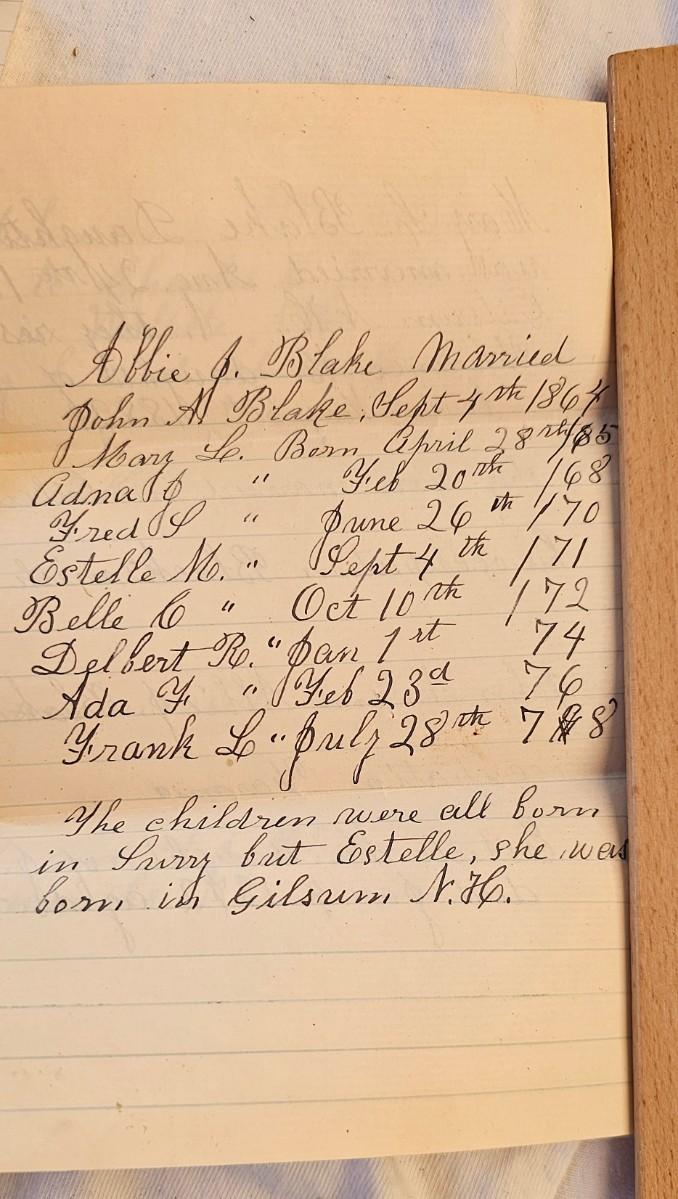 Abbie J. Blake Married
John A. Blake, Sept 4th 1864
Mary L. Born April 28th /65
Adna J " Feb 20th /68
Fred S " June 26th /70
Estelle M. " Sept 4th /71
Belle C " Oct 10th /72
Delbert R. " Jan 1st 74
Ada F " Feb 23d 76
Frank L " July 28th 78
The children were all born
in Surry but Estelle, she was
born in Gilsum N.H.